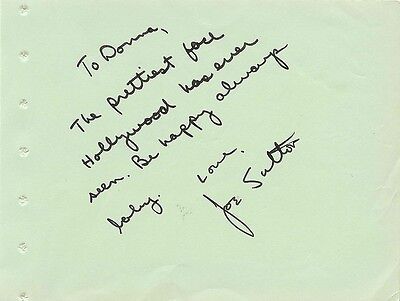 To Donna,
The prettiest face
Hollywood has ever
seen. Be happy always
baby. Love,
Joe Sutton